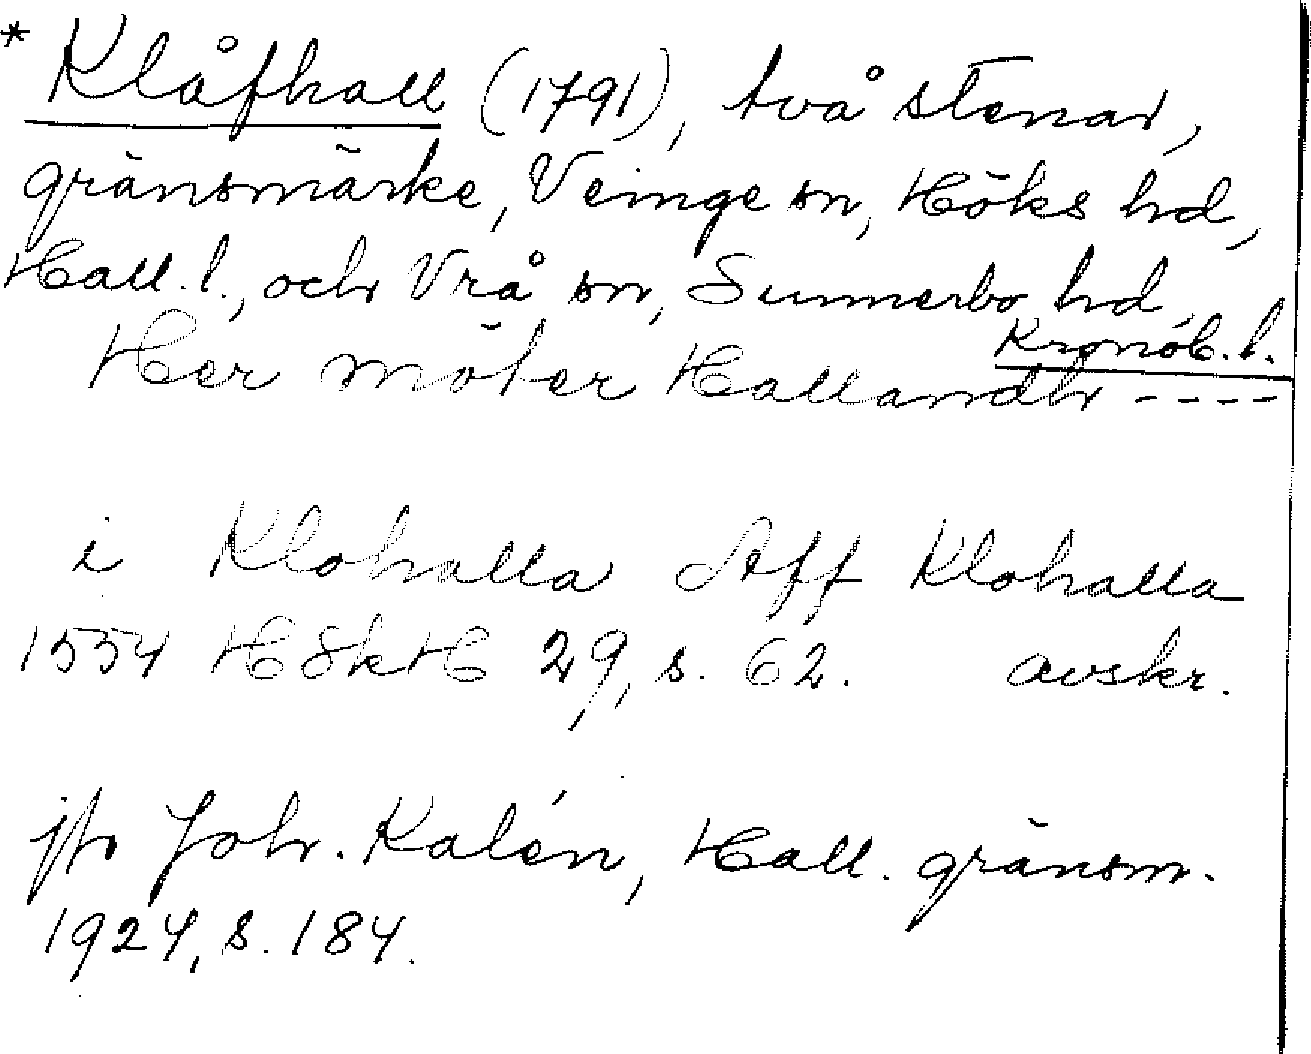 * Klåfhall (1791), två stenar,
gränsmärke, Veinge sn, Höks hd,
Hall. l., och Vrå sn, Sunnerbo hd,
Kronob. l.
Her möter Hallandh ----
i Klohalla Aff Klohalla
1554 HSkH 29, s. 62. avskr.
jfr Joh. Kalén, Hall. gränsm.
1924, s. 184.